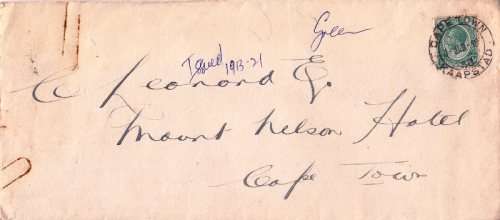 Green
CAPE TOWN
KAAPSTAD
Issued 1913-21
Leonard
Mount Nelson Hotel
Cape Town